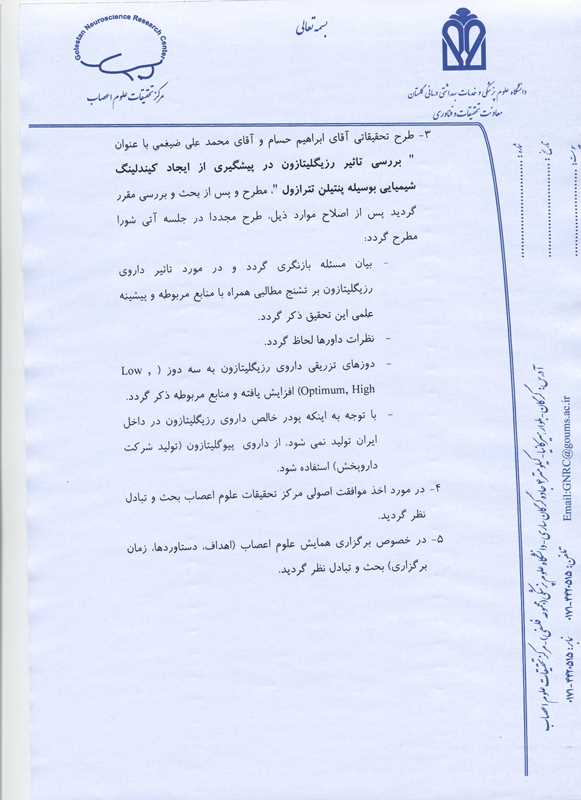 بسمه تعالی
Golestan Neuroscience Research Center
مرکز تحقیقات علوم اعصاب
دانشگاه علوم پزشکی و خدمات بهداشتی درمانی گلستان
معاونت تحقیقات و فناوری
شماره :
تاریخ :
پیوست :
۳- طرح تحقیقاتی آقای ابراهیم حسام و آقای محمد علی ضیغمی با عنوان
" بررسی تاثیر رزیگلیتازون در پیشگیری از ایجاد کیندلینگ
شیمیایی بوسیله پنتیلن تترازول "، مطرح و پس از بحث و بررسی مقرر
گردید پس از اصلاح موارد ذیل، طرح مجددا در جلسه آتی شورا
مطرح گردد:
- بیان مسئله بازنگری گردد و در مورد تاثیر داروی
رزیگلیتازون بر تشنج مطالبی همراه با منابع مربوطه و پیشینه
علمی این تحقیق ذکر گردد.
- نظرات داورها لحاظ گردد.
- دوزهای تزریقی داروی رزیگلیتازون به سه دوز ( , Low
Optimum, High) افزایش یافته و منابع مربوطه ذکر گردد.
- با توجه به اینکه پودر خالص داروی رزیگلیتازون در داخل
ایران تولید نمی شود، از داروی پیوگلیتازون (تولید شرکت
داروپخش) استفاده شود.
۴- در مورد اخذ موافقت اصولی مرکز تحقیقات علوم اعصاب بحث و تبادل
نظر گردید.
۵- در خصوص برگزاری همایش علوم اعصاب (اهداف، دستاوردها، زمان
برگزاری) بحث و تبادل نظر گردید.
آدرس : گرگان-بلوار هیرکانیا-کیلومتر ۲ جاده گرگان ساری-دانشگاه علوم پزشکی (مجموعه فلسفی)-مرکز تحقیقات علوم اعصاب
تلفن : ۴۴۲۰۵۱۵-۰۱۷۱ نمابر : ۴۴۲۰۵۱۵-۰۱۷۱
Email:GNRC@goums.ac.ir